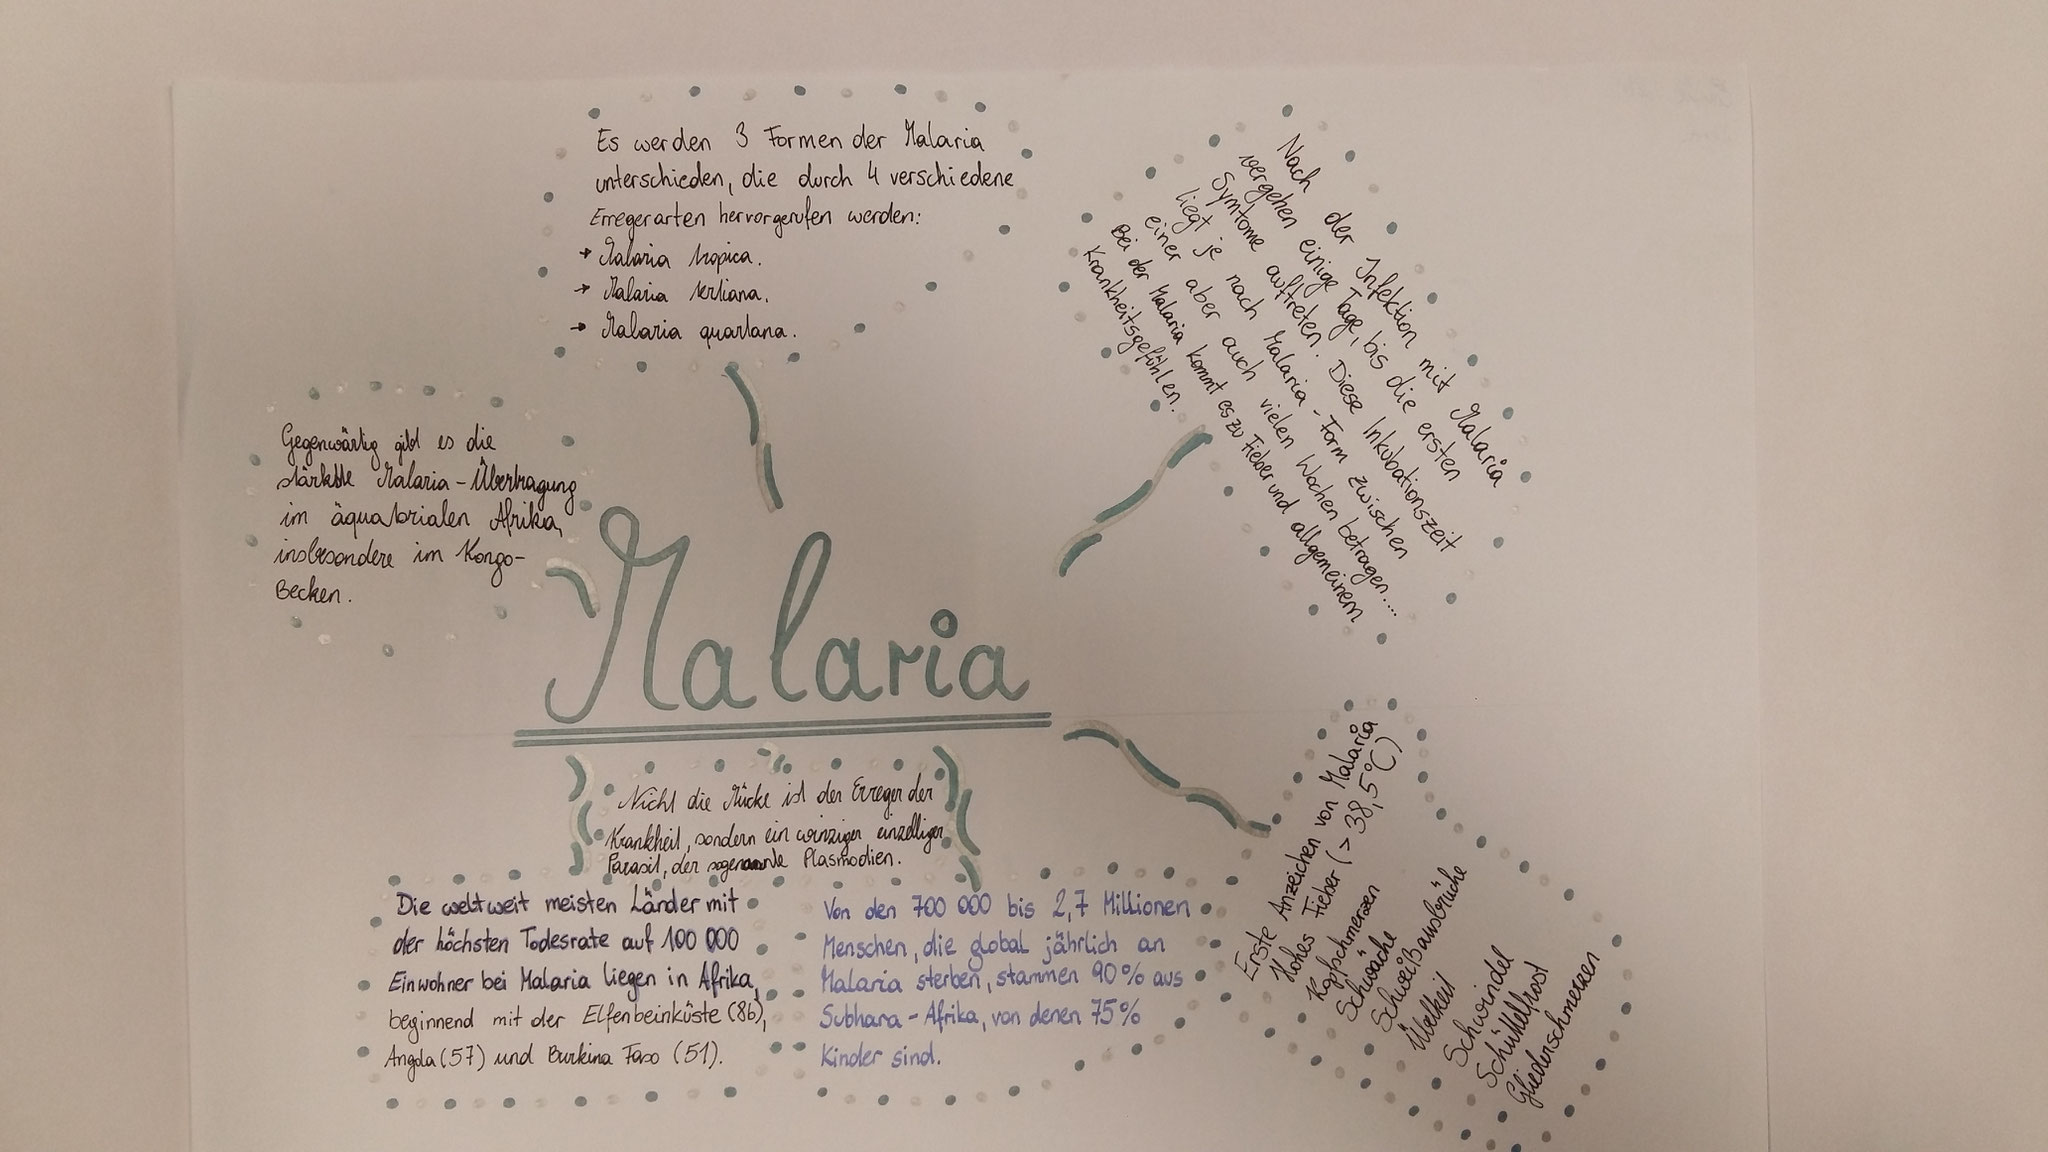 Es werden 3 Formen der Malaria
unterschieden, die durch 4 verschiedene
Erregerarten hervorgerufen werden:
→ Malaria tropica.
→ Malaria tertiana.
→ Malaria quartana.
Nach der Infektion mit Malaria
vergehen einige Tage, bis die ersten
Symtome auftreten. Diese Inkubationszeit
liegt je nach Malaria-Form zwischen
einer aber auch vielen Wochen betragen....
Bei der Malaria kommt es zu Fieber und allgemeinem
Krankheitsgefühlen.
Gegenwärtig gibt es die
stärkste Malaria-Übertragung
im äquatorialen Afrika,
insbesondere im Kongo-
Becken.
Malaria
Nicht die Mücke ist der Erreger der
Krankheit, sondern ein winziger einzelliger
Parasit, der sogenannte Plasmodien.
Die weltweit meisten Länder mit
der höchsten Todesrate auf 100 000
Einwohner bei Malaria liegen in Afrika,
beginnend mit der Elfenbeinküste (86),
Angola (57) und Burkina Faso (51).
Von den 700 000 bis 2,7 Millionen
Menschen, die global jährlich an
Malaria sterben, stammen 90% aus
Subhara-Afrika, von denen 75%
Kinder sind.
Erste Anzeichen von Malaria
Hohes Fieber (> 38,5°C)
Kopfschmerzen
Schwäche
Schweißausbrüche
Übelkeit
Schwindel
Schüttelfrost
Gliederschmerzen